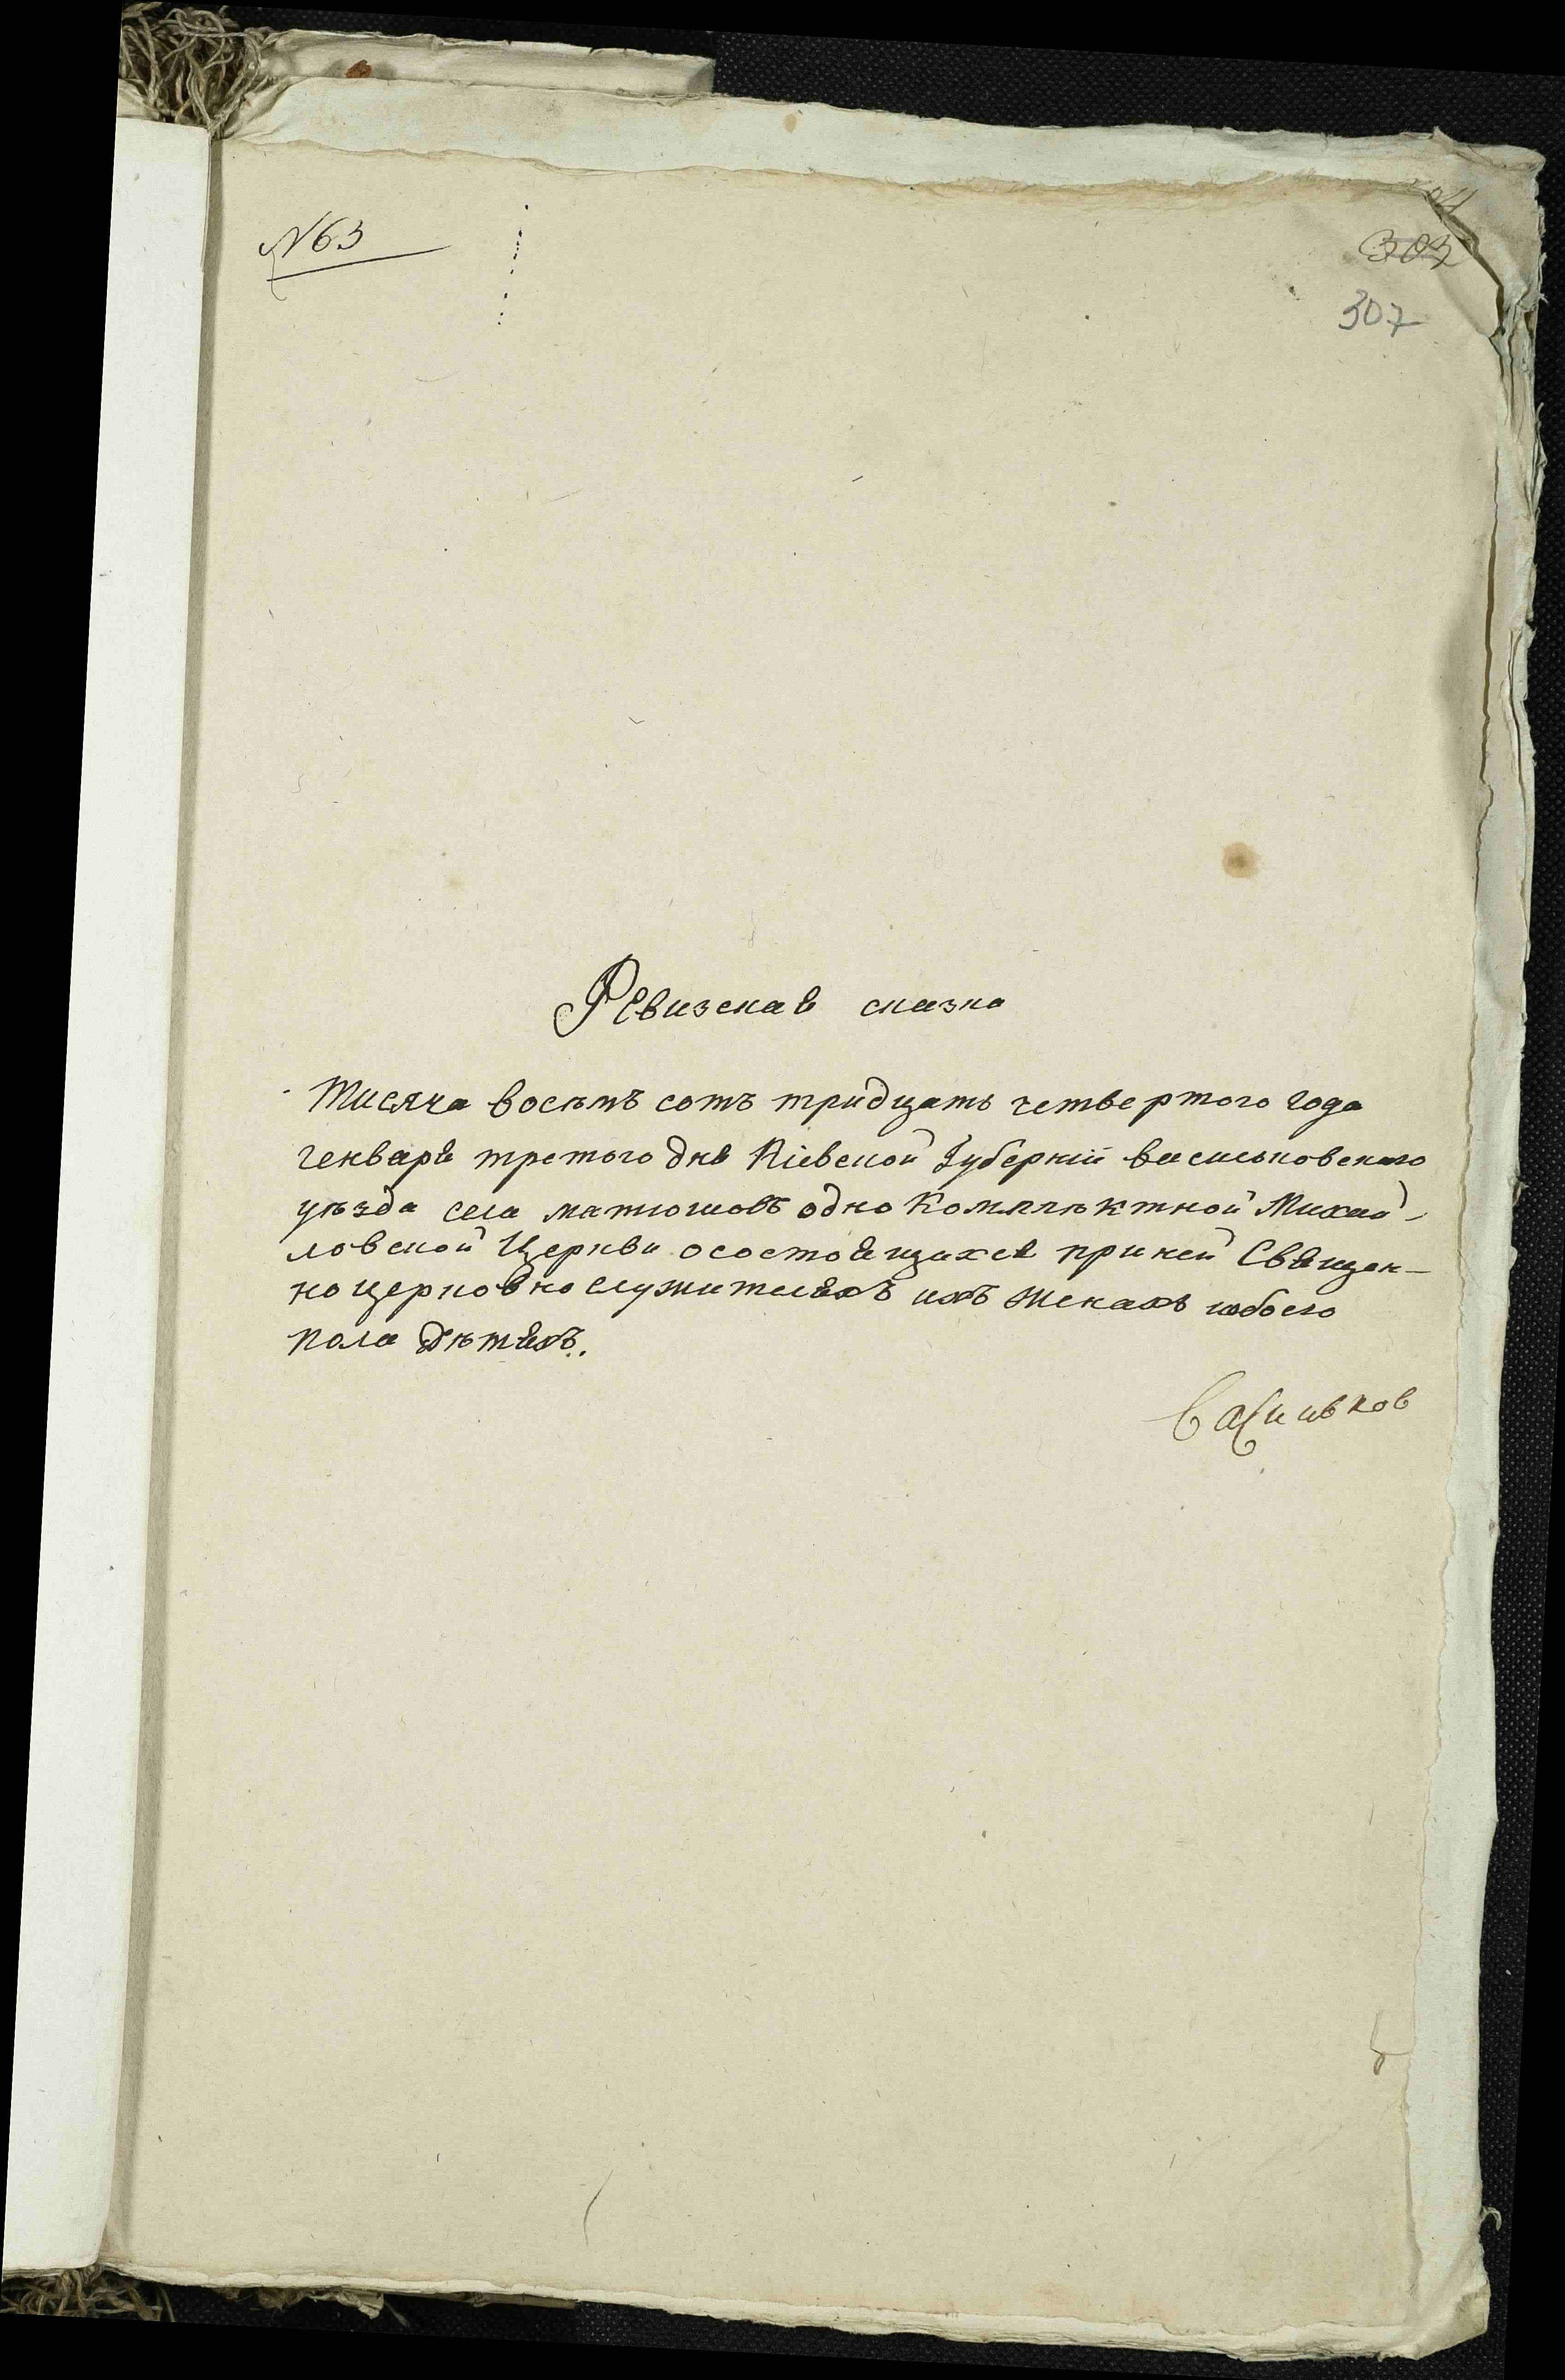 №63
307
Ревизская сказка
Тисяча восѣмъ сотъ тридцать четвертого года
генваря третого дня Кіевской Губерніи васильковского
уѣзда села матюшовъ одно комплѣктной Михай-
ловской Церкви осостоящихся приней Священ-
ноцерковнослужителяхъ ихъ женахъ иобоего
пола дѣтяхъ.